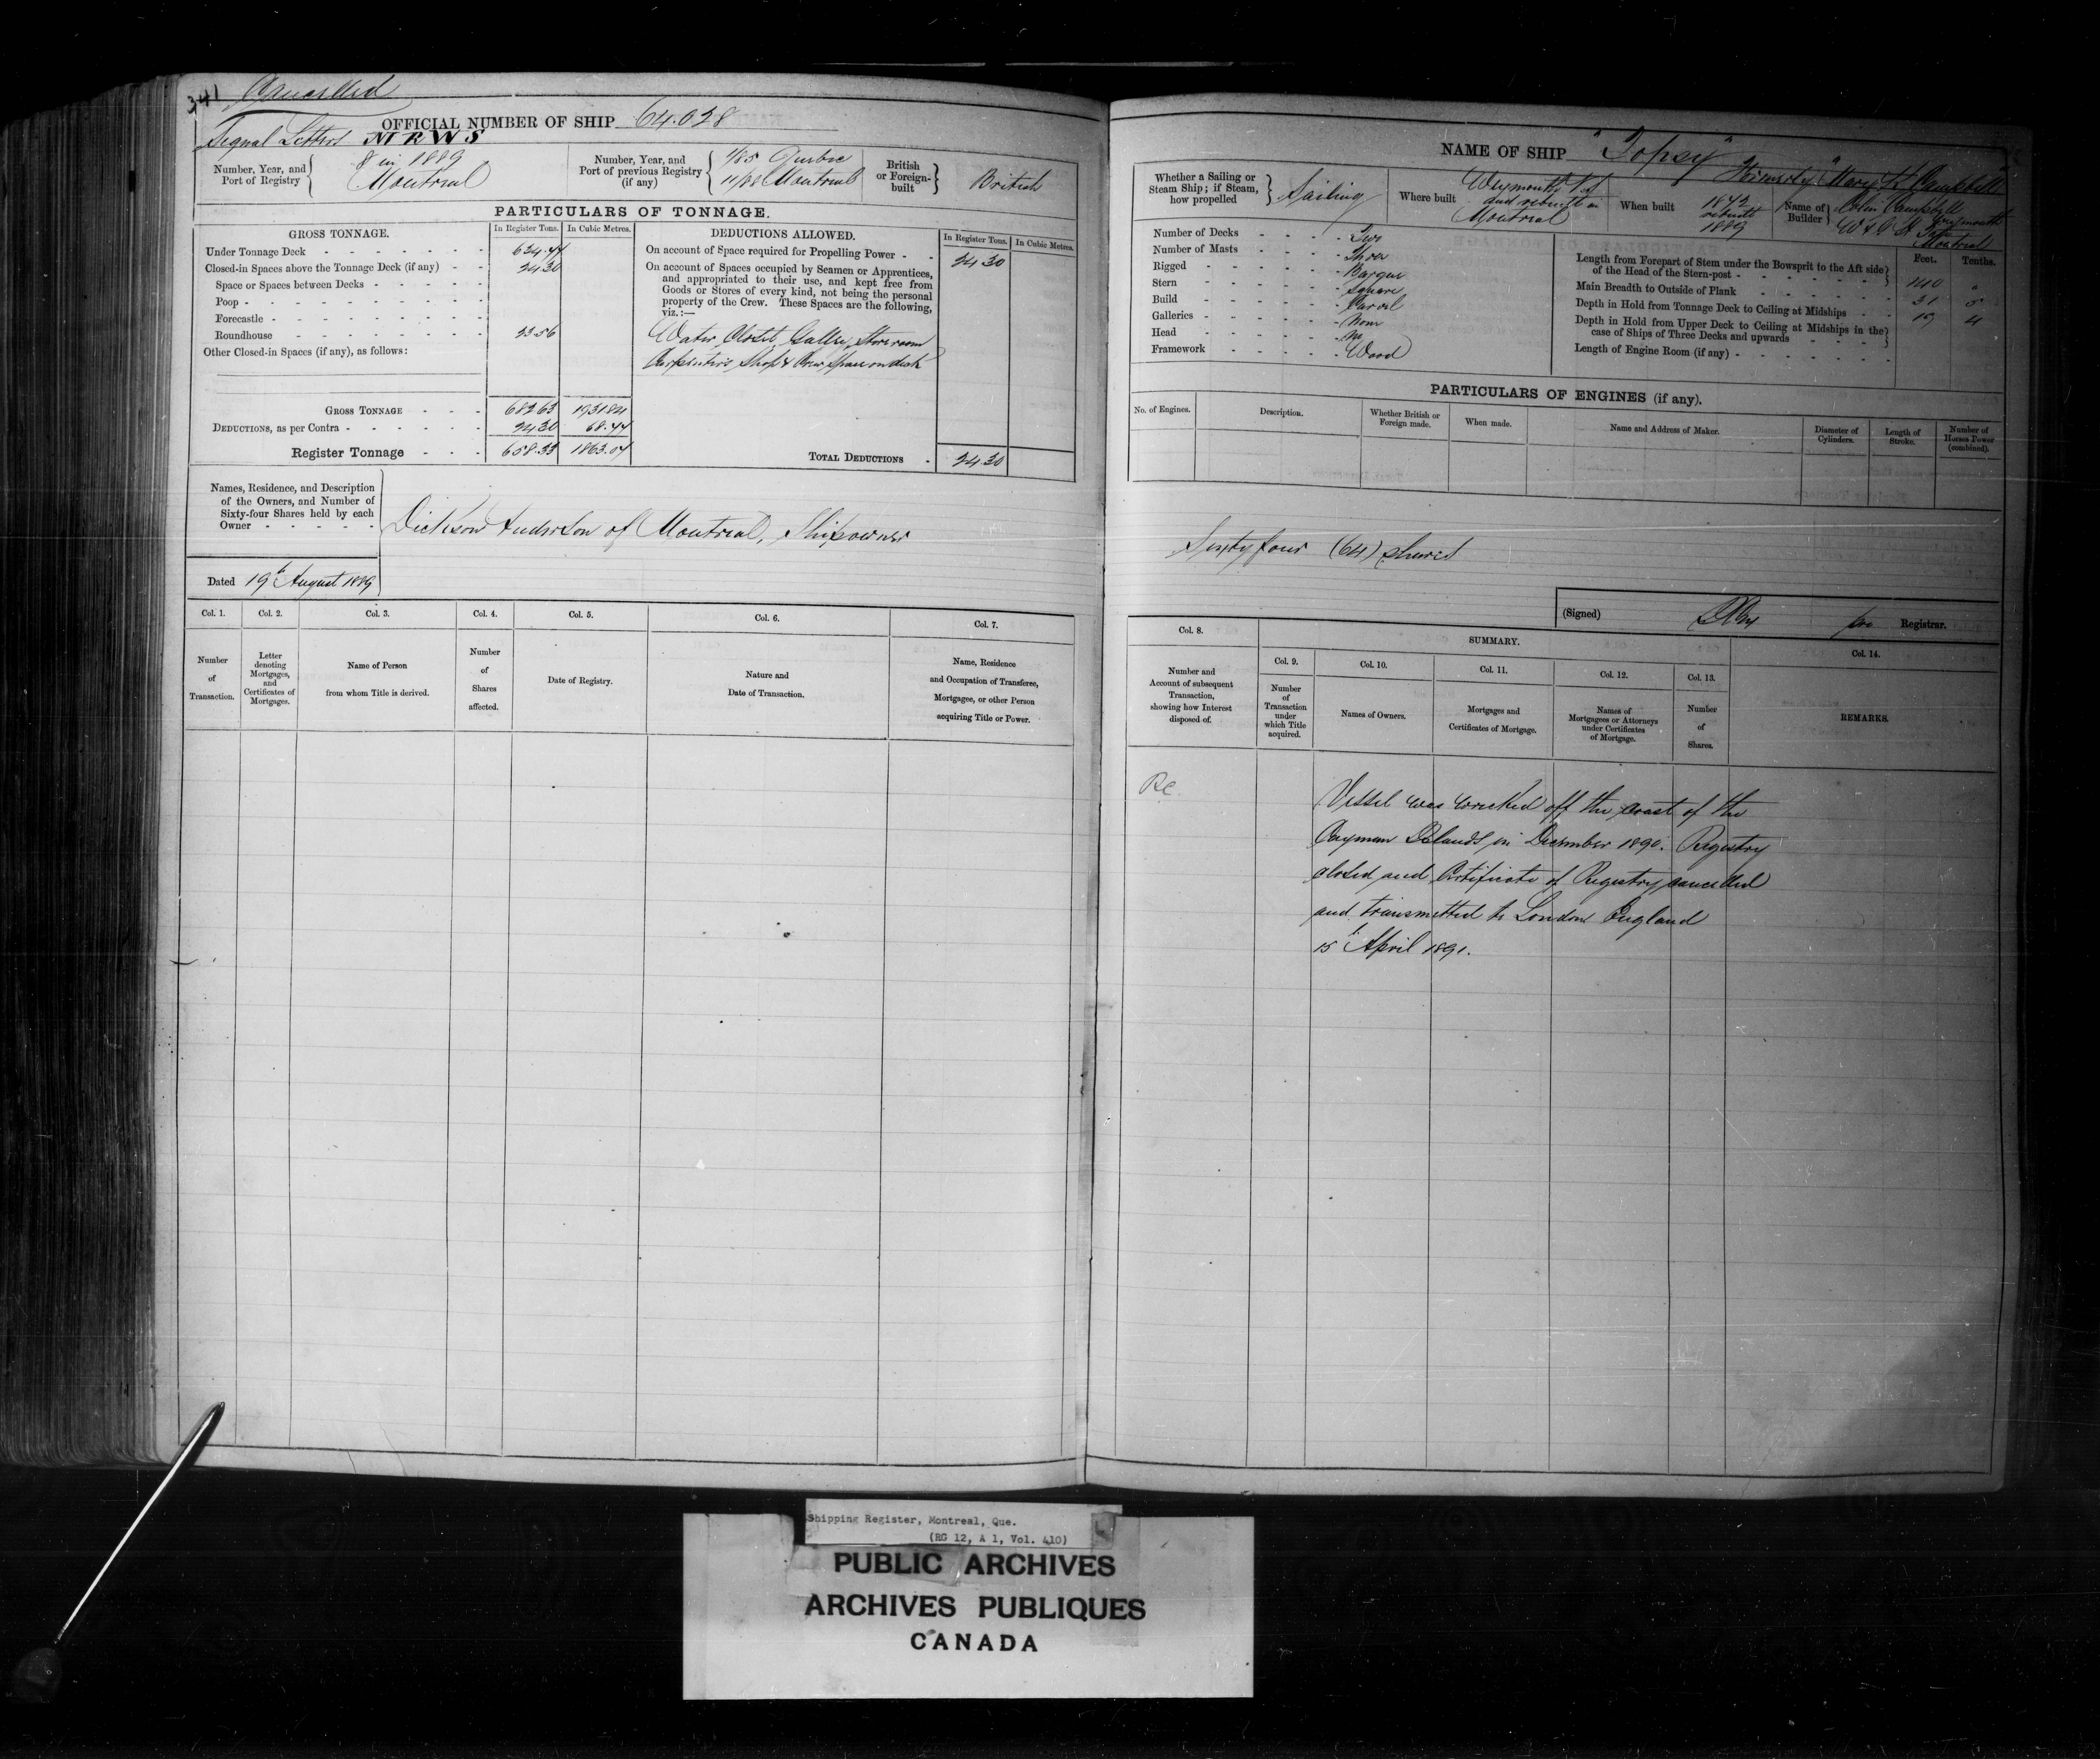 341 Cancelled
OFFICIAL NUMBER OF SHIP 64.028
Signal Letters
Number, Year, and Port of Registry 8 in 1889 Montreal
Number, Year, and Port of previous Registry (if any) 1/85 Quebec 11/88 Montreal
British or Foreign-built British
PARTICULARS OF TONNAGE.
GROSS TONNAGE. In Register Tons. In Cubic Metres.
Under Tonnage Deck
Closed-in Spaces above the Tonnage Deck (if any) 24.30
Space or Spaces between Decks
Poop
Forecastle
Roundhouse
Other Closed-in Spaces (if any), as follows:
GROSS TONNAGE 682.63 1931.84
DEDUCTIONS, as per Contra 24.30 68.77
Register Tonnage 658.33 1863.07
DEDUCTIONS ALLOWED. In Register Tons. In Cubic Metres.
On account of Space required for Propelling Power
On account of Spaces occupied by Seamen or Apprentices, and appropriated to their use, and kept free from Goods or Stores of every kind, not being the personal property of the Crew. These Spaces are the following, viz.:— 24.30
Water Closet, Galley, Storeroom
Carpenters Shop & Crew space on deck
TOTAL DEDUCTIONS 24.30
Names, Residence, and Description of the Owners, and Number of Sixty-four Shares held by each Owner
Dickson Anderson of Montreal, Shipowner
Dated 19th August 1889
Col. 1. Col. 2. Col. 3. Col. 4. Col. 5. Col. 6. Col. 7.
Number of Transaction.
Letter denoting Mortgages, and Certificates of Mortgages.
Name of Person from whom Title is derived.
Number of Shares affected.
Date of Registry.
Nature and Date of Transaction.
Name, Residence and Occupation of Transferee, Mortgagee, or other Person acquiring Title or Power.
NAME OF SHIP "Topsy"
Formerly "Mary K Campbell"
Whether a Sailing or Steam Ship; if Steam, how propelled Sailing
Where built Weymouth N.S and rebuilt in Montreal
When built rebuilt 1889
Name of Builder Colin Campbell Weymouth
Montreal
Number of Decks Two
Number of Masts Three
Rigged Barque
Stern Square
Build Carvel
Galleries None
Head
Framework Wood
Feet. Tenths.
Length from Forepart of Stem under the Bowsprit to the Aft side of the Head of the Stern-post 140
Main Breadth to Outside of Plank 31 5
Depth in Hold from Tonnage Deck to Ceiling at Midships
Depth in Hold from Upper Deck to Ceiling at Midships in the case of Ships of Three Decks and upwards
Length of Engine Room (if any)
PARTICULARS OF ENGINES (if any).
No. of Engines. Description. Whether British or Foreign made. When made. Name and Address of Maker. Diameter of Cylinders. Length of Stroke. Number of Horses Power (combined).
Sixty four (64) shares
(Signed) pro Registrar.
Col. 8. SUMMARY. Col. 14.
Col. 9. Col. 10. Col. 11. Col. 12. Col. 13.
Number and Account of subsequent Transaction, showing how Interest disposed of.
Number of Transaction under which Title acquired.
Names of Owners.
Mortgages and Certificates of Mortgage.
Names of Mortgagees or Attorneys under Certificates of Mortgage.
Number of Shares.
REMARKS.
Vessel was wrecked off the coast of the
Cayman Islands in December 1890. Registry
closed and Certificate of Registry cancelled
and transmitted to London England
15th April 1891.
Shipping Register, Montreal, Que.
(RG 12, A 1, Vol. 410)
PUBLIC ARCHIVES
ARCHIVES PUBLIQUES
CANADA